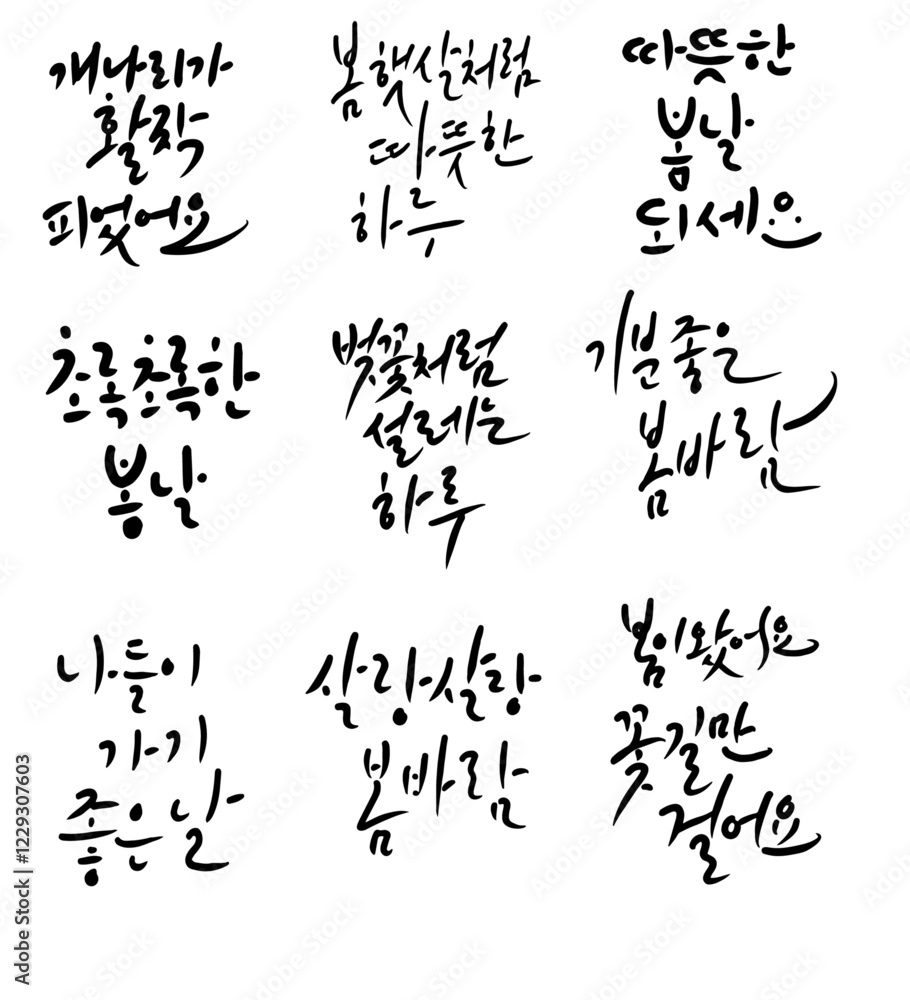 개나리가
활짝
피었어요
봄햇살처럼
따뜻한
하루
따뜻한
봄날
되세요
초록초록한
봄날
벚꽃처럼
설레는
하루
기분좋은
봄바람
나들이
가기
좋은날
살랑살랑
봄바람
봄이왔어요
꽃길만
걸어요
Adobe Stock | #1229307603